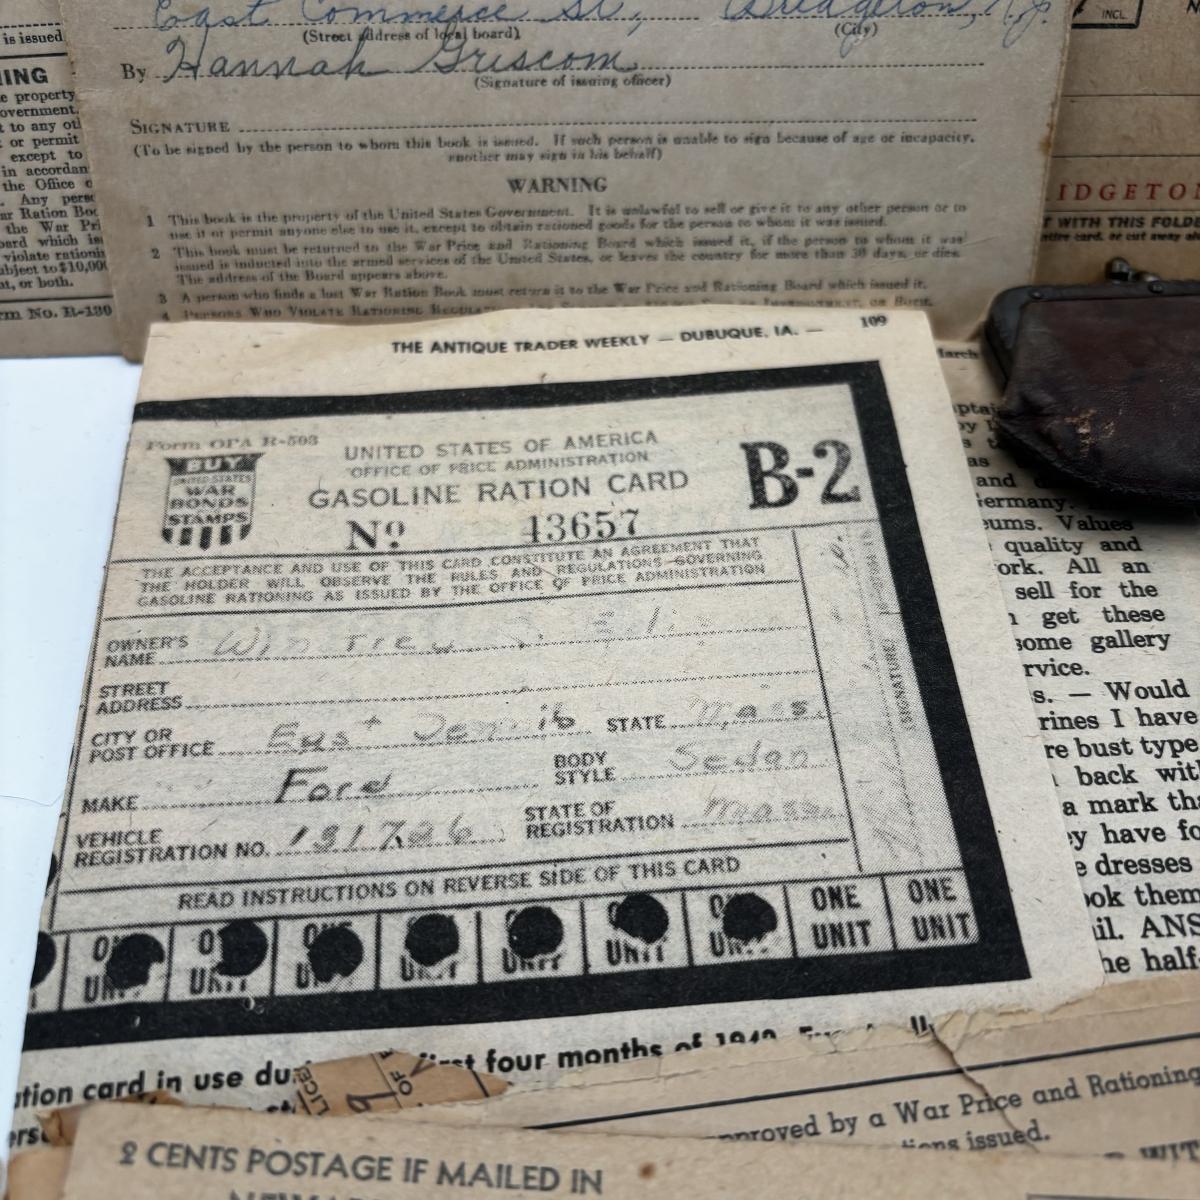 East Commerce St, Bridgeton, N.J.
(Street address of local board) (City)
By Hannah Griscom
(Signature of issuing officer)
SIGNATURE
(To be signed by the person to whom this book is issued. If such person is unable to sign because of age or incapacity,
another may sign in his behalf)
WARNING
1 This book is the property of the United States Government. It is unlawful to sell or give it to any other person or to
use it or permit anyone else to use it, except to obtain rationed goods for the person to whom it was issued.
2 This book must be returned to the War Price and Rationing Board which issued it, if the person to whom it was
issued is inducted into the armed services of the United States, or leaves the country for more than 30 days, or dies.
The address of the Board appears above.
3 A person who finds a lost War Ration Book must return it to the War Price and Rationing Board which issued it.
4 PERSONS WHO VIOLATE RATIONING
is issued
e property
overnment.
t to any
or permit
except to
in accordan
the Office
. Any
ar Ration
the War
oard which
violate
ubject to $10,000
nt, or both.
rm No. R-130
INCL.
IDGETO
T WITH THIS FOLDE
THE ANTIQUE TRADER WEEKLY — DUBUQUE, IA. — 109
Form OPA R-503
BUY
UNITED STATES
WAR
BONDS
STAMPS
UNITED STATES OF AMERICA
OFFICE OF PRICE ADMINISTRATION
GASOLINE RATION CARD
B-2
Nº 43657
THE ACCEPTANCE AND USE OF THIS CARD CONSTITUTE AN AGREEMENT THAT
THE HOLDER WILL OBSERVE THE RULES AND REGULATIONS GOVERNING
GASOLINE RATIONING AS ISSUED BY THE OFFICE OF PRICE ADMINISTRATION
OWNER'S
NAME
STREET
ADDRESS
CITY OR
POST OFFICE East STATE Mass.
MAKE Ford BODY
STYLE Sedan
VEHICLE
REGISTRATION NO. 131726 STATE OF
REGISTRATION Mass.
SIGNATURE
READ INSTRUCTIONS ON REVERSE SIDE OF THIS CARD
ONE UNIT
ONE UNIT
March
and
Germany.
eums. Values
quality and
ork. All an
sell for the
get these
some gallery
rvice.
s. — Would
rines I have
re bust type
back
a mark
y have
e dresses
ook them
il. ANS
he half-
ation card in use first four months of
approved by a War Price and Rationing
issued.
2 CENTS POSTAGE IF MAILED IN